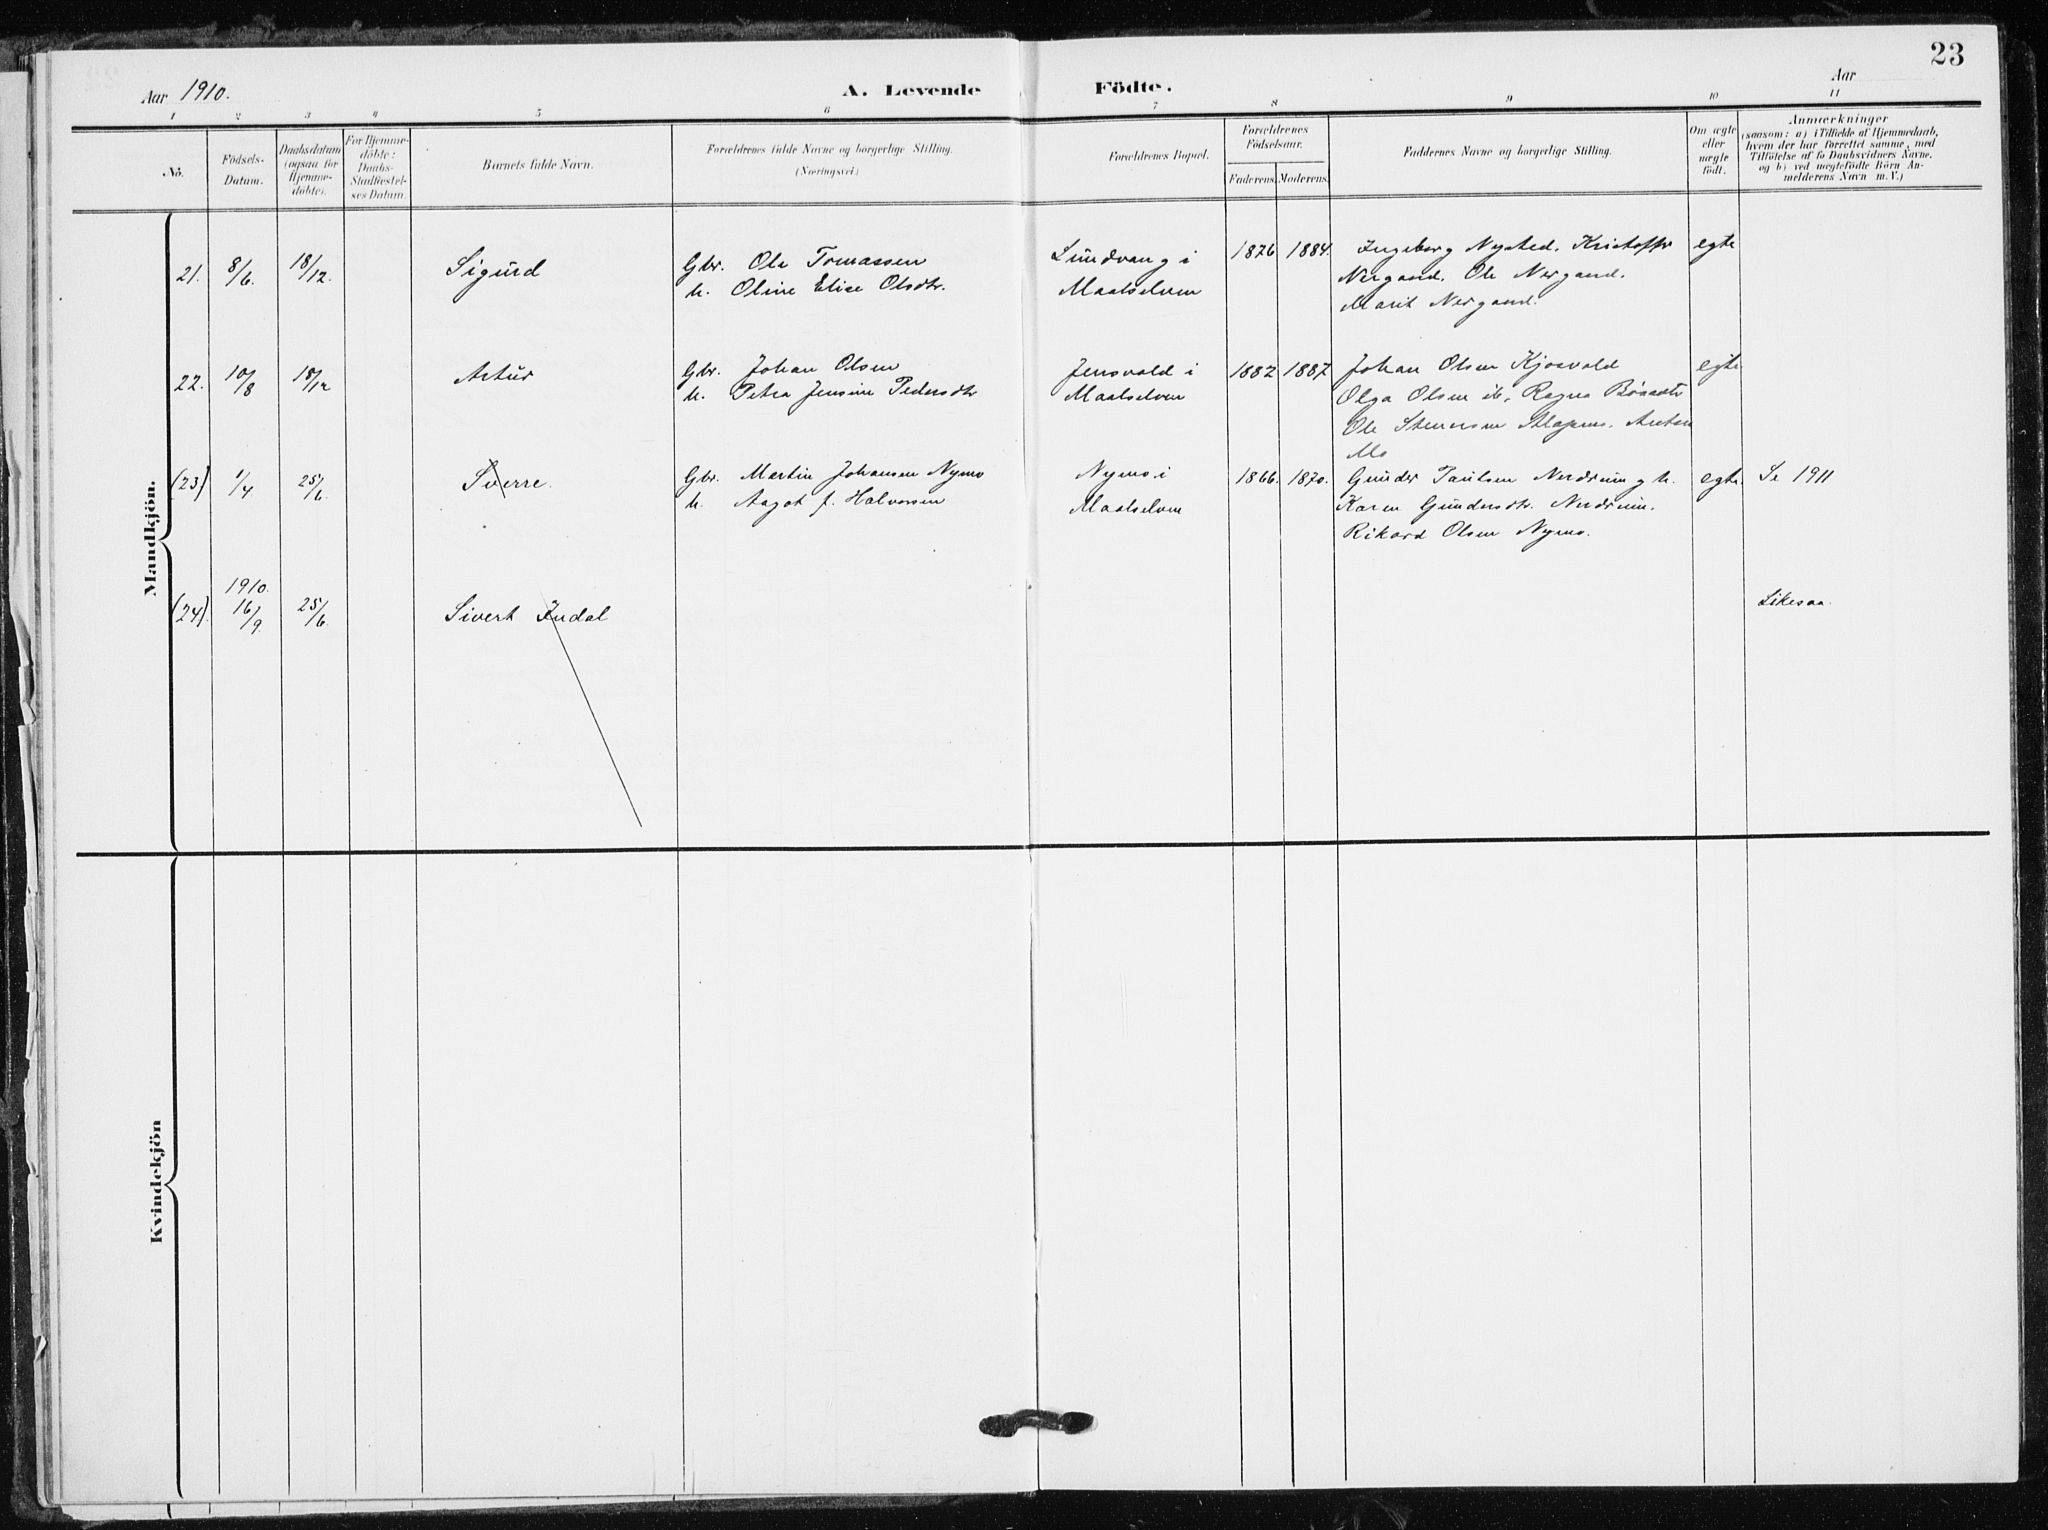 23
Aar 1910. A. Levende Födte. Aar
1 2 3 4 5 6 7 8 9 10 11
No.
Födsels-
Datum.
Daabsdatum
(ogsaa for
Hjemme-
döbte).
For Hjemme-
döbte:
Daabs-
Stadfæstel-
ses Datum.
Barnets fulde Navn.
Forældrenes fulde Navne og borgerlige Stilling.
(Næringsvei.)
Forældrenes Bopæl.
Forældrenes
Födselsaar.
Faderens. Moderens.
Faddernes Navne og borgerlige Stilling.
Om ægte
eller
uægte
født.
Anmærkninger
(saasom: a) i Tilfælde af Hjemmedaab,
hvem der har forrettet samme, med
Tilföielse af to Daabsvidners Navne,
og b) ved uægtefödte Börn An-
melderens Navn m. V.)
Mandkjön.
21. 8/6. 18/12. Sigurd
Gbr. Ole Tomassen
h. Oline Elise Olsdtr.
Lundvang i
Maalselven
1876 1884.
Ingeborg Nysted. Kristoffer
Nergaard. Ole Nergaard.
Marit Nergaard.
egte
22. 10/8 18/12 Artur
Gbr. Johan Olsen
h. Petra Jensine Pedersdtr
Jensvold i
Maalselven
1882 1887
Johan Olsen Kjosvold
Olga Olsen ib, Ragna
Ole Anton
Mo
egte
(23) 1/4 25/6. Sverre.
Gbr. Martin Johansen Nymo
h. Aagot f. Halvorsen
Nymo i
Maalselven
1866. 1870.
Gunder Paulsen Nerdrum g h.
Karen Gundersdtr. Nerdrum.
Rikard Olsen Nymo.
egte. Se 1911
(24). 1910. 16/9. 25/6. Sivert Indal
Likesaa.
Kvindekjön